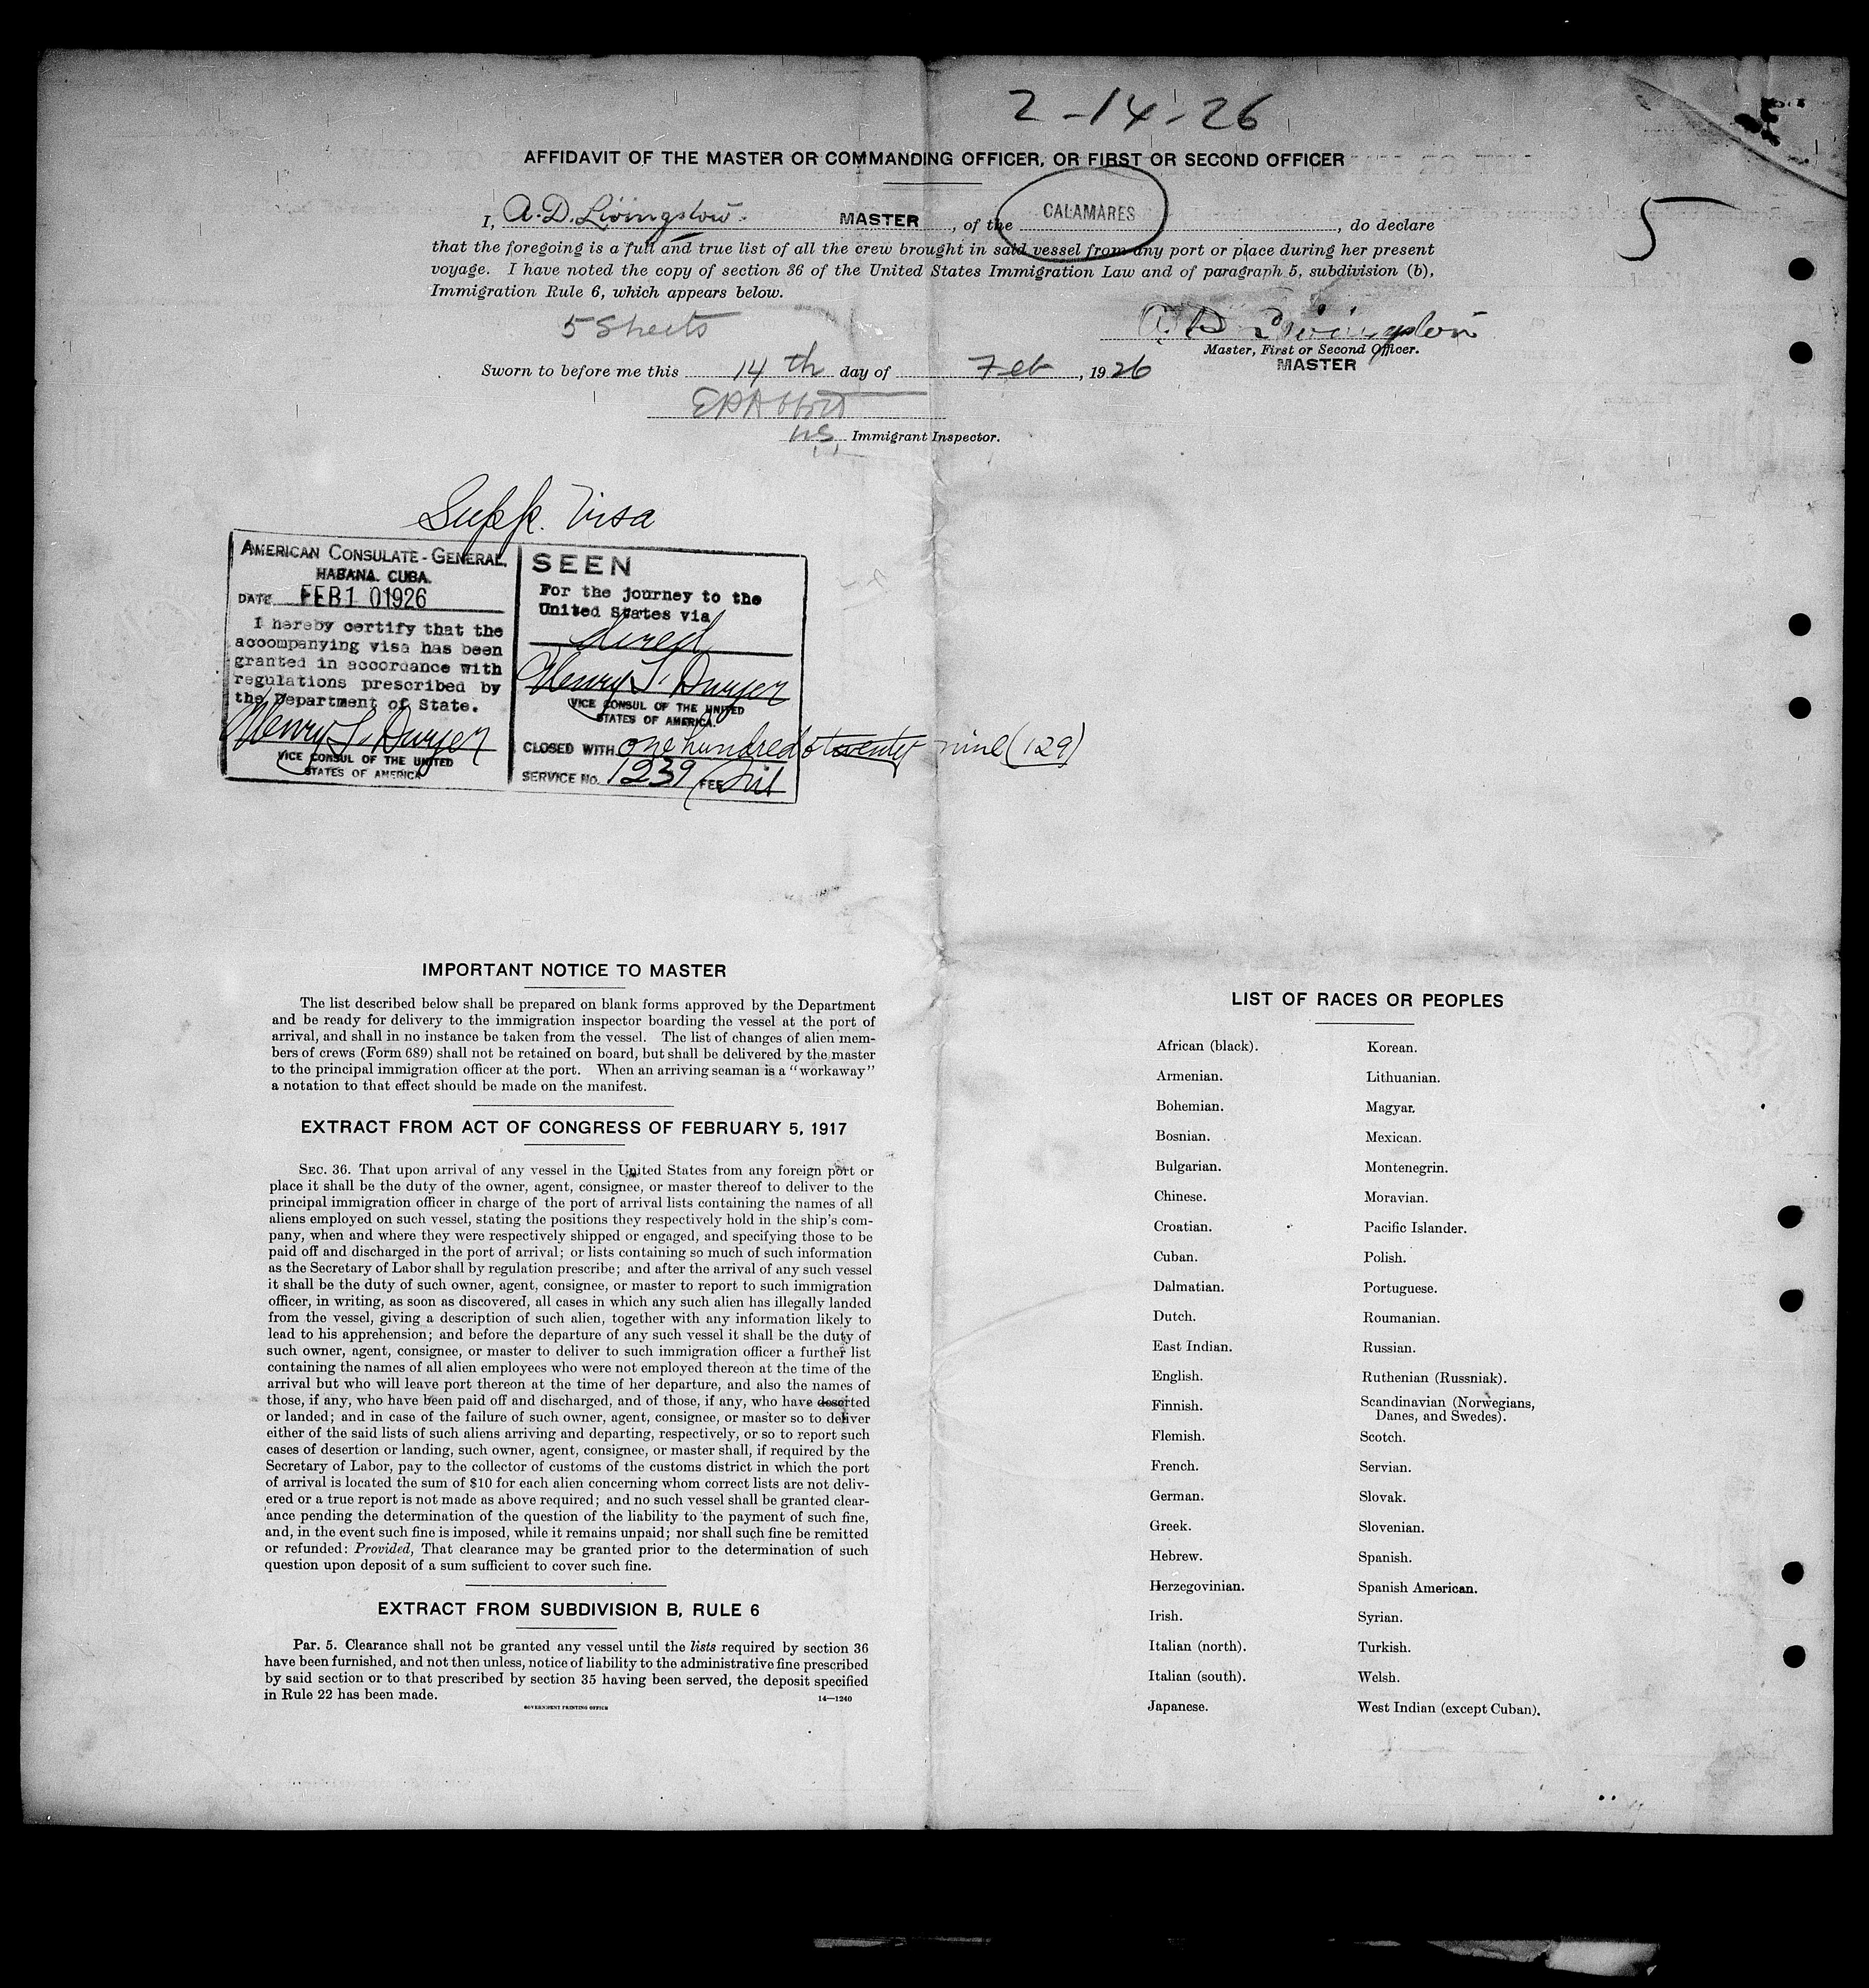 2-14-26
AFFIDAVIT OF THE MASTER OR COMMANDING OFFICER, OR FIRST OR SECOND OFFICER
5
I, A. D. Livingston. MASTER, of the CALAMARES, do declare
that the foregoing is a full and true list of all the crew brought in said vessel from any port or place during her present
voyage. I have noted the copy of section 36 of the United States Immigration Law and of paragraph 5, subdivision (b),
Immigration Rule 6, which appears below.
5 Sheets
A. D. Livingston
Master, First or Second Officer.
MASTER
Sworn to before me this 14th day of Feb, 1926
Immigrant Inspector.
Supp. Visa
AMERICAN CONSULATE-GENERAL,
HABANA. CUBA.
DATE FEB 10 1926
I hereby certify that the
accompanying visa has been
granted in accordance with
regulations prescribed by
the Department of State.
Henry T. Dwyer
VICE CONSUL OF THE UNITED
STATES OF AMERICA
SEEN
For the journey to the
United States via
direct
Henry T. Dwyer
VICE CONSUL OF THE UNITED
STATES OF AMERICA.
CLOSED WITH one hundred & twenty nine (129)
SERVICE No. 1239 FEE Nil
IMPORTANT NOTICE TO MASTER
The list described below shall be prepared on blank forms approved by the Department
and be ready for delivery to the immigration inspector boarding the vessel at the port of
arrival, and shall in no instance be taken from the vessel. The list of changes of alien mem-
bers of crews (Form 689) shall not be retained on board, but shall be delivered by the master
to the principal immigration officer at the port. When an arriving seaman is a "workaway"
a notation to that effect should be made on the manifest.
EXTRACT FROM ACT OF CONGRESS OF FEBRUARY 5, 1917
SEC. 36. That upon arrival of any vessel in the United States from any foreign port or
place it shall be the duty of the owner, agent, consignee, or master thereof to deliver to the
principal immigration officer in charge of the port of arrival lists containing the names of all
aliens employed on such vessel, stating the positions they respectively hold in the ship's com-
pany, when and where they were respectively shipped or engaged, and specifying those to be
paid off and discharged in the port of arrival; or lists containing so much of such information
as the Secretary of Labor shall by regulation prescribe; and after the arrival of any such vessel
it shall be the duty of such owner, agent, consignee, or master to report to such immigration
officer, in writing, as soon as discovered, all cases in which any such alien has illegally landed
from the vessel, giving a description of such alien, together with any information likely to
lead to his apprehension; and before the departure of any such vessel it shall be the duty of
such owner, agent, consignee, or master to deliver to such immigration officer a further list
containing the names of all alien employees who were not employed thereon at the time of the
arrival but who will leave port thereon at the time of her departure, and also the names of
those, if any, who have been paid off and discharged, and of those, if any, who have deserted
or landed; and in case of the failure of such owner, agent, consignee, or master so to deliver
either of the said lists of such aliens arriving and departing, respectively, or so to report such
cases of desertion or landing, such owner, agent, consignee, or master shall, if required by the
Secretary of Labor, pay to the collector of customs of the customs district in which the port
of arrival is located the sum of $10 for each alien concerning whom correct lists are not deliv-
ered or a true report is not made as above required; and no such vessel shall be granted clear-
ance pending the determination of the question of the liability to the payment of such fine,
and, in the event such fine is imposed, while it remains unpaid; nor shall such fine be remitted
or refunded: Provided, That clearance may be granted prior to the determination of such
question upon deposit of a sum sufficient to cover such fine.
EXTRACT FROM SUBDIVISION B, RULE 6
Par. 5. Clearance shall not be granted any vessel until the lists required by section 36
have been furnished, and not then unless, notice of liability to the administrative fine prescribed
by said section or to that prescribed by section 35 having been served, the deposit specified
in Rule 22 has been made.
14—1240
GOVERNMENT PRINTING OFFICE
LIST OF RACES OR PEOPLES
African (black).
Armenian.
Bohemian.
Bosnian.
Bulgarian.
Chinese.
Croatian.
Cuban.
Dalmatian.
Dutch.
East Indian.
English.
Finnish.
Flemish.
French.
German.
Greek.
Hebrew.
Herzegovinian.
Irish.
Italian (north).
Italian (south).
Japanese.
Korean.
Lithuanian.
Magyar.
Mexican.
Montenegrin.
Moravian.
Pacific Islander.
Polish.
Portuguese.
Roumanian.
Russian.
Ruthenian (Russniak).
Scandinavian (Norwegians,
Danes, and Swedes).
Scotch.
Servian.
Slovak.
Slovenian.
Spanish.
Spanish American.
Syrian.
Turkish.
Welsh.
West Indian (except Cuban).